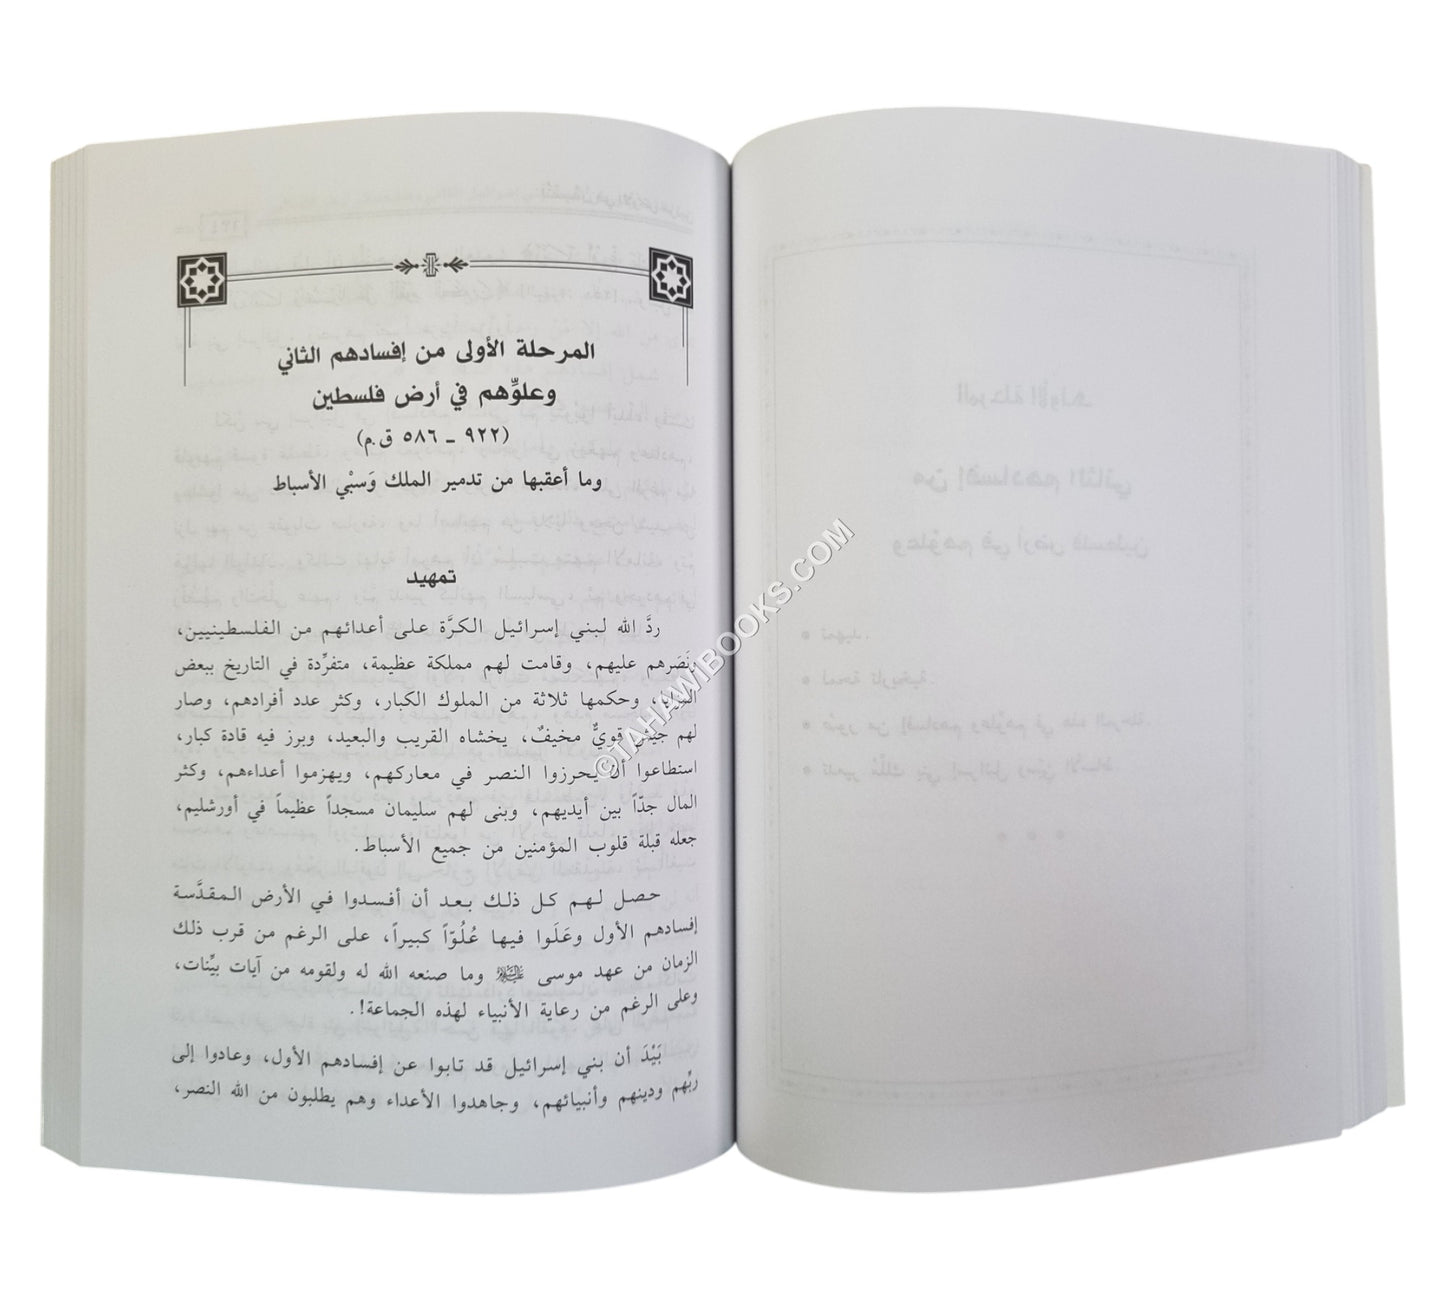 المرحلة الأولى من إفسادهم الثاني
وعلوِّهم في أرض فلسطين
(٩٢٢ ـ ٥٨٦ ق.م)
وما أعقبها من تدمير الملك وَسبْي الأسباط
تمهيد
ردَّ الله لبني إسرائيل الكرَّة على أعدائهم من الفلسطينيين،
ونَصَرهم عليهم، وقامت لهم مملكة عظيمة، متفرِّدة في التاريخ ببعض
المزايا، وحكمها ثلاثة من الملوك الكبار، وكثر عدد أفرادهم، وصار
لهم جيش قويٌّ مخيفٌ، يخشاه القريب والبعيد، وبرز فيه قادة كبار،
استطاعوا أن يحرزوا النصر في معاركهم، ويهزموا أعداءهم، وكثر
المال جدّاً بين أيديهم، وبنى لهم سليمان مسجداً عظيماً في أورشليم،
جعله قبلة قلوب المؤمنين من جميع الأسباط.
حصل لهم كل ذلك بعد أن أفسدوا في الأرض المقدَّسة
إفسادهم الأول وعَلَوا فيها عُلُوّاً كبيراً، على الرغم من قرب ذلك
الزمان من عهد موسى عليه السلام وما صنعه الله له ولقومه من آيات بيِّنات،
وعلى الرغم من رعاية الأنبياء لهذه الجماعة!.
بَيْدَ أن بني إسرائيل قد تابوا عن إفسادهم الأول، وعادوا إلى
ربِّهم ودينهم وأنبيائهم، وجاهدوا الأعداء وهم يطلبون من الله النصر،
©TAHAWIBOOKS.COM